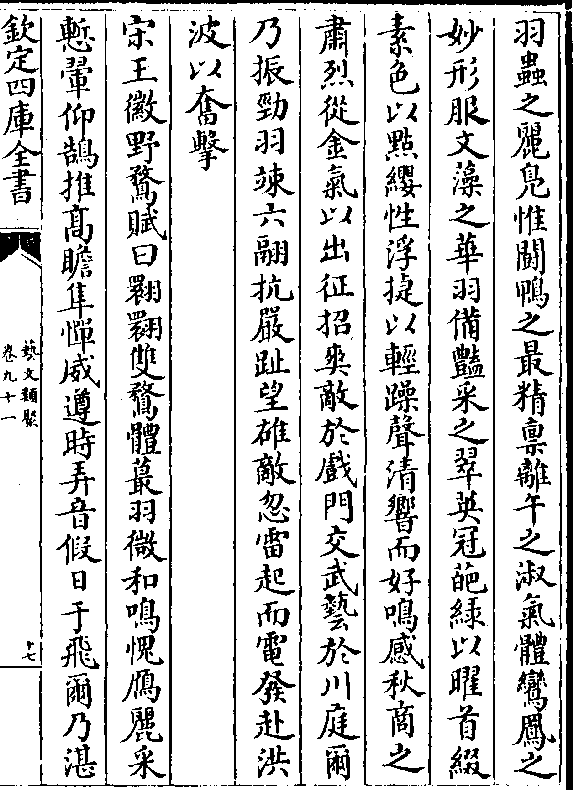 羽蟲之麗鳧惟鬪鴨之最精禀離午之淑氣體鸞鳳之
妙形服文藻之華羽備豔采之翠英冠葩綠以曜首綴
素色以點纓性浮捷以輕躁聲清響而好鳴感秋商之
肅烈從金氣以出征招爽敵於戲門交武藝於川庭爾
乃振勁羽竦六翮抗嚴趾望雄敵忽雷起而電發赴洪
波以奮擊
宋王徽野鶩賦曰翾翾雙鶩體蕞羽微和鳴愧鴈麗采
慙翬仰鵠推髙瞻隼憚威遵時弄音假日于飛爾乃湛
欽定四庫全書
藝文類聚
卷九十一
十七